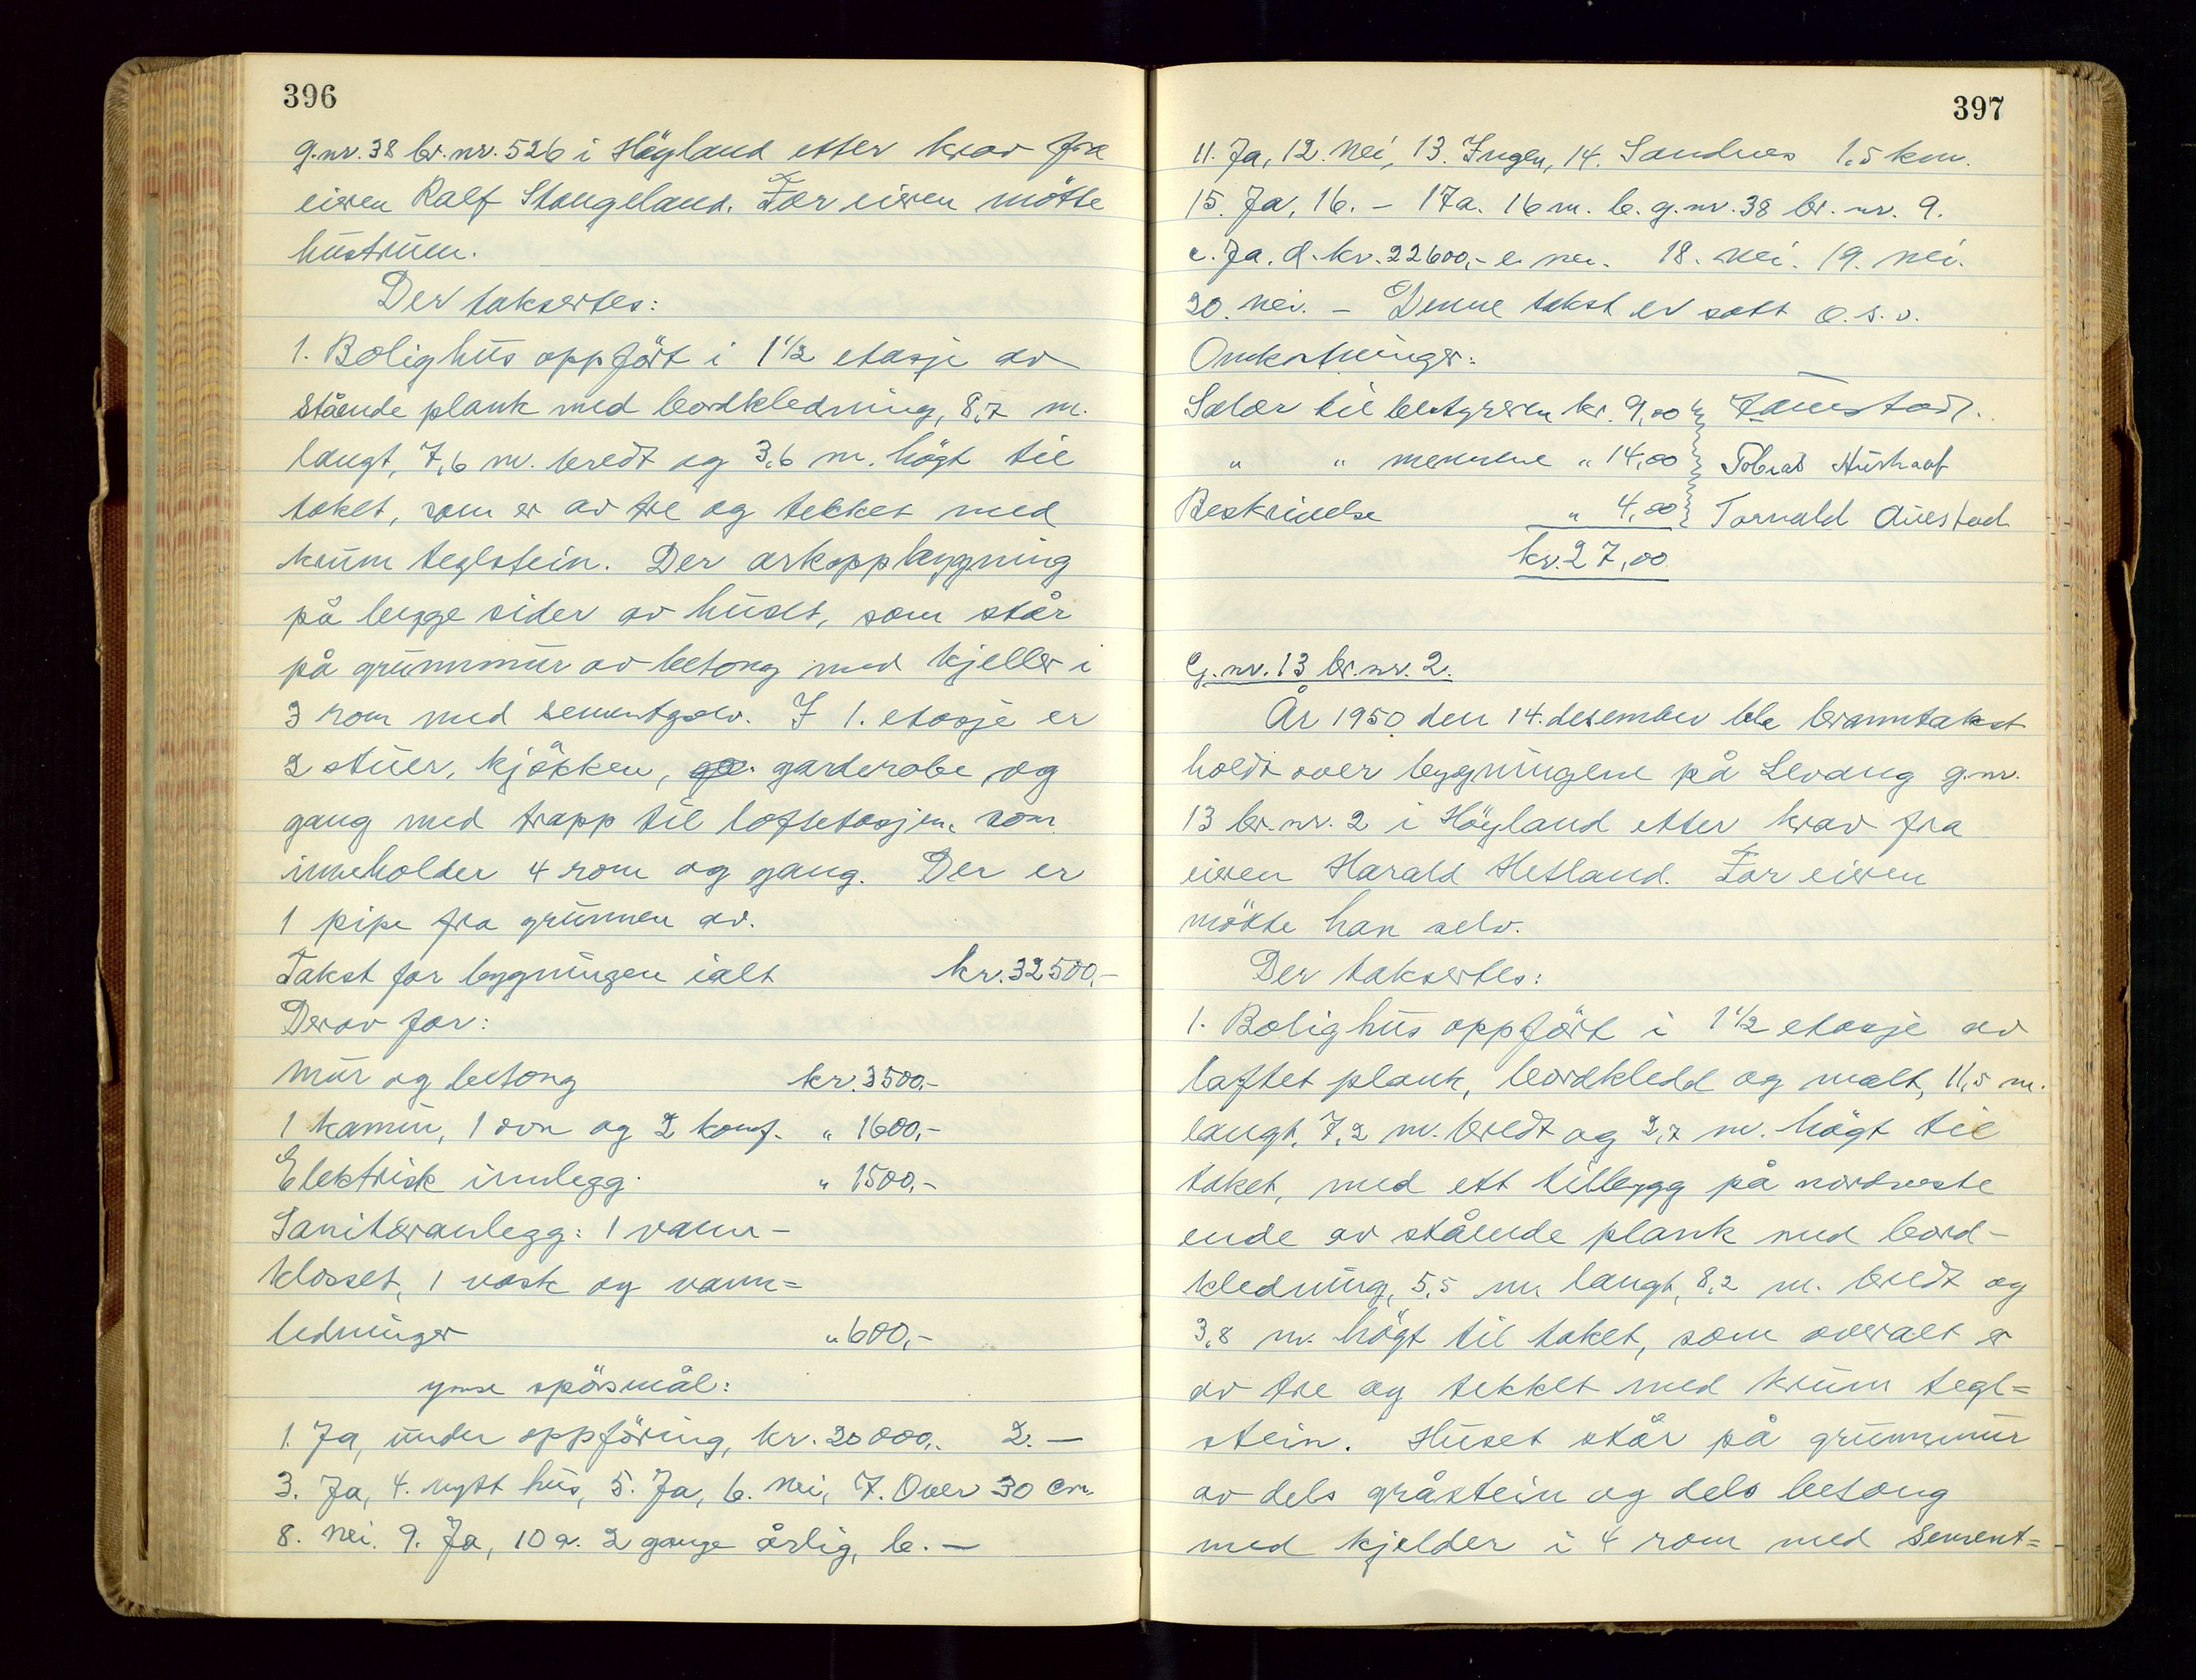 396
g.nr. 38 br.nr. 526 i Höyland etter krav fra
eieren Ralf Stangeland. For eieren mötte
hustruen.
Der taksertes:
1. Bolighus oppfört i 1½ etasje av
stående plank med bordkledning, 8,7 m.
langt, 7,6 m. bredt og 3,6 m. högt til
taket, som er av tre og tekket med
krum teglstein. Der arkoppbygning
på begge sider av huset, som står
på grunnmur av betong med kjeller i
3 rom med sementgolv. I 1. etasje er
2 stuer, kjökken, garderobe og
gang med trapp til loftetasjen, som
inneholder 4 rom og gang. Der er
1 pipe fra grunnen av.
Takst for bygningen ialt kr. 32500,-
Derav for:
mur og betong kr. 3500,-
1 kamin, 1 ovn og 2 komf. " 1600,-
Elektrisk innlegg. " 1500,-
Sanitæranlegg: 1 vann-
klosset, 1 vask og vann=
ledninger " 600,-
ymse spörsmål:
1. Ja, under oppföring, kr. 20000,. 2. —
3. Ja, 4. nytt hus, 5. Ja, 6. nei, 7. Over 30 cm.
8. nei. 9. Ja, 10 a. 2 gange årlig, b. —
397
11. Ja, 12. nei, 13. Ingen, 14. Sandnes 1,5 km.
15. Ja, 16. - 17a. 16 m. b. g.nr. 38 br. nr. 9.
c. Ja. d. kr. 22600,- e. nei. 18. nei. 19. nei.
20. nei. - Denne takst er satt o.s.v.
Omkostninger:
Salær til bestyreren kr. 9,00 } T. Auestad.
" " mennene " 14,00 } Tobias
Beskrivelse " 4,00 } Torvald Auestad
kr. 27,00
G.nr. 13 br.nr. 2.
År 1950 den 14. desember ble branntakst
holdt over bygningene på Levang g.nr.
13 br.nr. 2 i Höyland etter krav fra
eieren Harald Hetland. For eieren
mötte han selv.
Der taksertes:
1. Bolighus oppfört i 1½ etasje av
laftet plank, bordkledd og malt, 11,5 m.
langt, 7,2 m. bredt og 2,7 m. högt til
taket, med ett tilbygg på nordveste
ende av stående plank med bord-
kledning, 5,5 m. langt, 8,2 m. bredt og
3,8 m. högt til taket, som overalt er
av tre og tekket med krum tegl=
stein. Huset står på grunnmur
av dels gråstein og dels betong
med kjelder i 4 rom med sement=